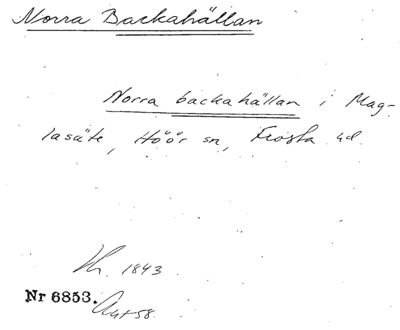 Norra Backahällan
Norra backahällan i Mag-
lasäte, Höör sn, Frosta hd.
1843
Nr 6853.